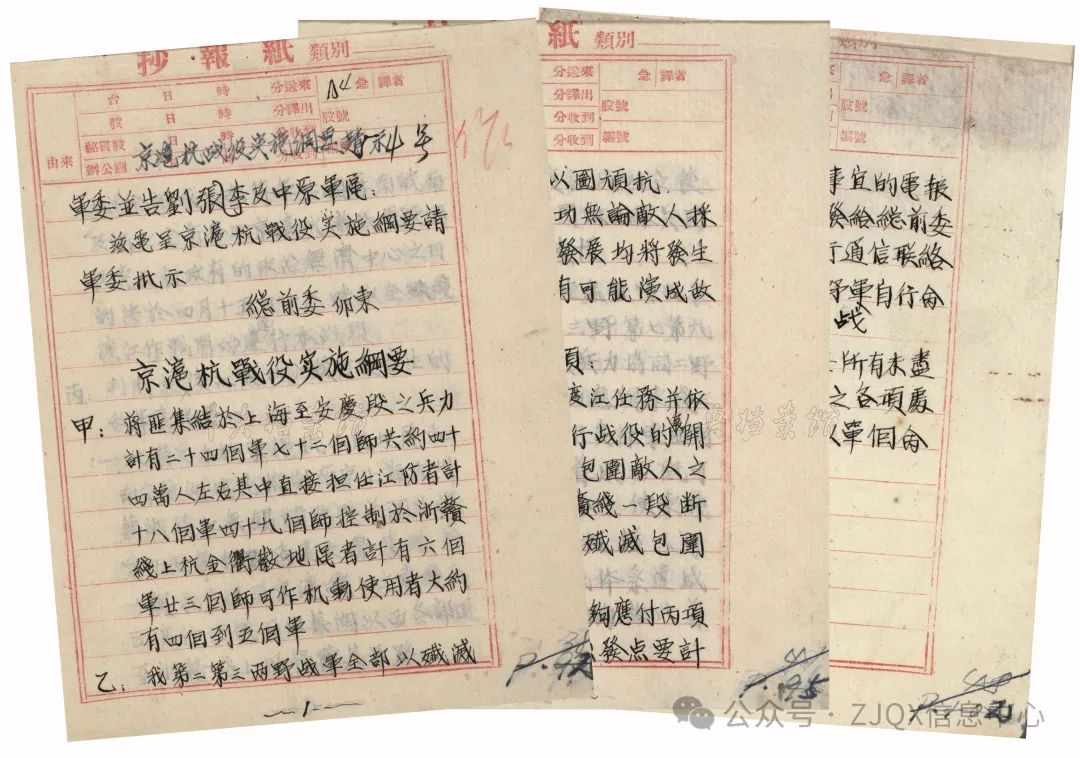 抄報紙 類別
台 日 時 分送來 A4 急 譯者
股 日 時 分譯出 股號
秘書股 日 時 分收到
由來 辦公廳 分收到
京滬杭战役实施綱要請示 4 号
軍委並告劉張李及中原軍區：
兹電呈京滬杭戰役实施綱要請
軍委批示
總前委 卯東
京滬杭戰役实施綱要
甲：蔣匪集結於上海至安慶段之兵力
計有二十四個軍七十二個師共約四十
四萬人左右其中直接担任江防者計
十八個軍四十九個師控制於浙贛
綫上杭金衢徽地區者計有六個
軍廿三個師可作机動使用者大約
有四個到五個軍
乙：我第二第三兩野战軍全部以殲滅
1
紙 類別
分送來 急 譯者
分譯出 股號
分收到
分收到 編號
以圖頑抗
功無論敵人採
發展均將發生
有可能演成敌
項：
渡江任務并依
行战役的展開
包圍敵人之
贛綫一段断
殲滅包圍
夠應付兩項
發点要計
P.195
類別
急 譯者
股號
編號
事宜的電報
發給總前委
行通信联絡
野軍自行命
战
所有未盡
之各項處
以單個命
公众号 · ZJQX信息中心